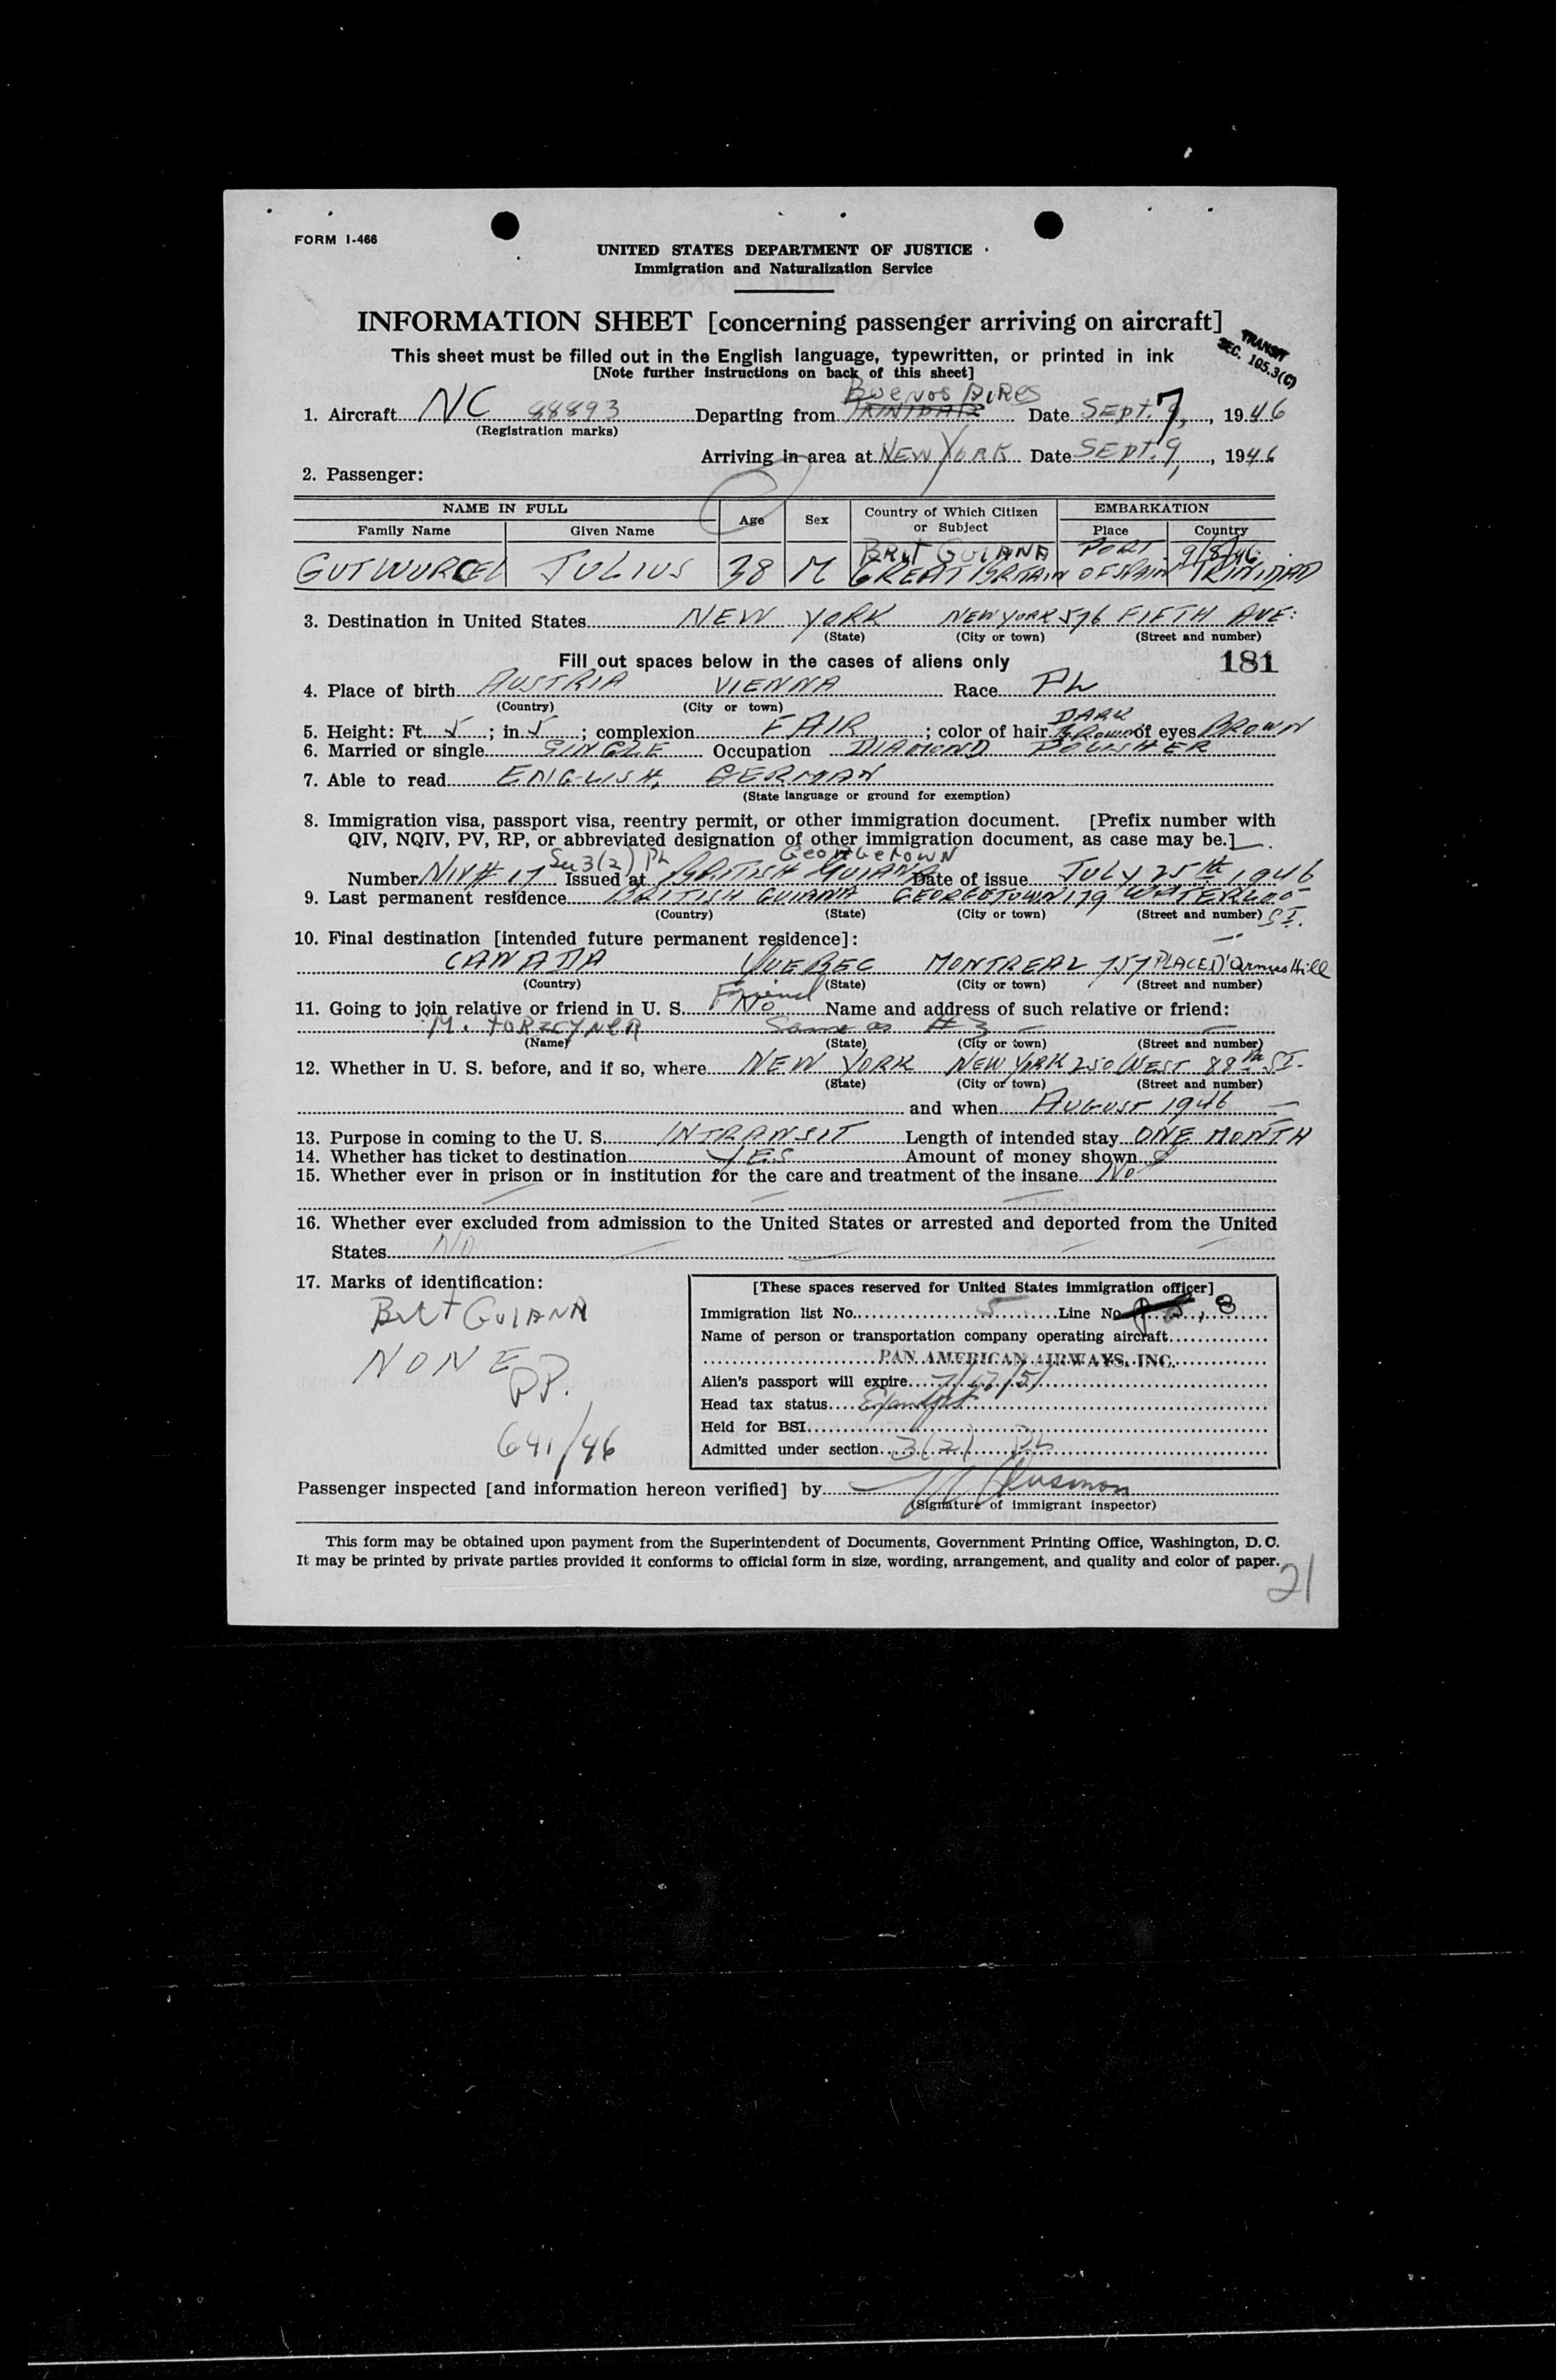 FORM I-466
UNITED STATES DEPARTMENT OF JUSTICE
Immigration and Naturalization Service
INFORMATION SHEET [concerning passenger arriving on aircraft]
TRANSIT
SEC. 105.3(C)
This sheet must be filled out in the English language, typewritten, or printed in ink
[Note further instructions on back of this sheet]
Buenos Aires
1. Aircraft NC 88893 Departing from TRINIDAD Date SEPT. 7, 1946
(Registration marks)
Arriving in area at NEW YORK Date SEPT. 9, 1946
2. Passenger:
NAME IN FULL Age Sex Country of Which Citizen or Subject EMBARKATION
Family Name Given Name Place Country
BRIT GUIANA PORT 9/8/46
GUTWURCEL JULIUS 38 M GREAT BRITAIN OF SPAIN TRINIDAD
3. Destination in United States NEW YORK NEW YORK 576 FIFTH AVE:
(State) (City or town) (Street and number)
Fill out spaces below in the cases of aliens only 181
4. Place of birth AUSTRIA VIENNA Race PL
(Country) (City or town)
DARK
5. Height: Ft. 5; in. 5; complexion FAIR; color of hair Brown of eyes BROWN
6. Married or single SINGLE Occupation DIAMOND POLISHER
7. Able to read ENGLISH, GERMAN
(State language or ground for exemption)
8. Immigration visa, passport visa, reentry permit, or other immigration document. [Prefix number with
QIV, NQIV, PV, RP, or abbreviated designation of other immigration document, as case may be.]
Sec 3(2) PL Georgetown
Number NIV# 17 Issued at BRITISH GUIANA Date of issue JULY 25th 1946
9. Last permanent residence BRITISH GUIANA GEORGETOWN 179 WATERLOO ST.
(Country) (State) (City or town) (Street and number)
10. Final destination [intended future permanent residence]:
CANADA QUEBEC MONTREAL 757 PLACE D'Armes Hill
(Country) (State) (City or town) (Street and number)
Friend
11. Going to join relative or friend in U. S. No Name and address of such relative or friend:
M. TORZCYNER Same as #3
(Name) (State) (City or town) (Street and number)
12. Whether in U. S. before, and if so, where NEW YORK NEW YORK 250 WEST 88th ST.
(State) (City or town) (Street and number)
and when AUGUST 1946
13. Purpose in coming to the U. S. INTRANSIT Length of intended stay ONE MONTH
14. Whether has ticket to destination YES Amount of money shown
15. Whether ever in prison or in institution for the care and treatment of the insane No
16. Whether ever excluded from admission to the United States or arrested and deported from the United
States NO
17. Marks of identification:
Brit GUIANA
NONE
PP.
641/46
[These spaces reserved for United States immigration officer]
Immigration list No. 5 Line No. 8
Name of person or transportation company operating aircraft
PAN AMERICAN AIRWAYS, INC.
Alien's passport will expire
Head tax status
Held for BSI
Admitted under section 3(2) PL
Passenger inspected [and information hereon verified] by
(Signature of immigrant inspector)
This form may be obtained upon payment from the Superintendent of Documents, Government Printing Office, Washington, D. C.
It may be printed by private parties provided it conforms to official form in size, wording, arrangement, and quality and color of paper.
21